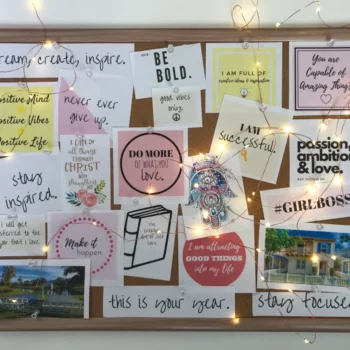 dream, create, inspire.
BE
BOLD.
I AM FULL OF
creative ideas & inspiration
You are
Capable of
Amazing Things
Positive Mind
Positive Vibes
Positive Life
never ever
give up.
good vibes
only.
I AM
successful.
passion,
ambition
& love.
I CAN DO
all things
THROUGH
CHRIST
DO MORE
OF WHAT YOU
love.
stay
inspired.
#GIRLBOSS
I will get
transferred to the
that I love
Make it
happen
I AM ATTRACTING
GOOD THINGS
INTO MY LIFE
this is your year.
stay focused